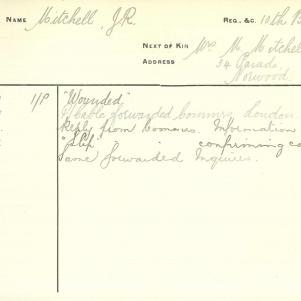 NAME Mitchell, J.R. REG., &C. 10th B
NEXT OF KIN Mrs M. Mitchell
ADDRESS 34 Parade,
Norwood.
1/P "Wounded"
Cable forwarded Commrs. London.
Reply from Comrs. Information
confirming ca
Same forwarded Inquirer.